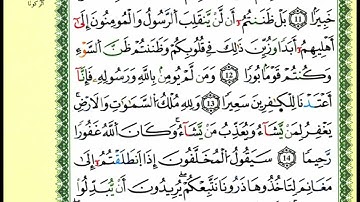 خَبِيرًا ﴿11﴾ بَلْ ظَنَنتُمْ أَن لَّن يَنقَلِبَ الرَّسُولُ وَالْمُؤْمِنُونَ إِلَىٰ
أَهْلِيهِمْ أَبَدًا وَزُيِّنَ ذَٰلِكَ فِي قُلُوبِكُمْ وَظَنَنتُمْ ظَنَّ السَّوْءِ
وَكُنتُمْ قَوْمًا بُورًا ﴿12﴾ وَمَن لَّمْ يُؤْمِن بِاللَّهِ وَرَسُولِهِ فَإِنَّا
أَعْتَدْنَا لِلْكَافِرِينَ سَعِيرًا ﴿13﴾ وَلِلَّهِ مُلْكُ السَّمَاوَاتِ وَالْأَرْضِ
يَغْفِرُ لِمَن يَشَاءُ وَيُعَذِّبُ مَن يَشَاءُ وَكَانَ اللَّهُ غَفُورًا
رَّحِيمًا ﴿14﴾ سَيَقُولُ الْمُخَلَّفُونَ إِذَا انطَلَقْتُمْ إِلَىٰ
مَغَانِمَ لِتَأْخُذُوهَا ذَرُونَا نَتَّبِعْكُمْ يُرِيدُونَ أَن يُبَدِّلُوا